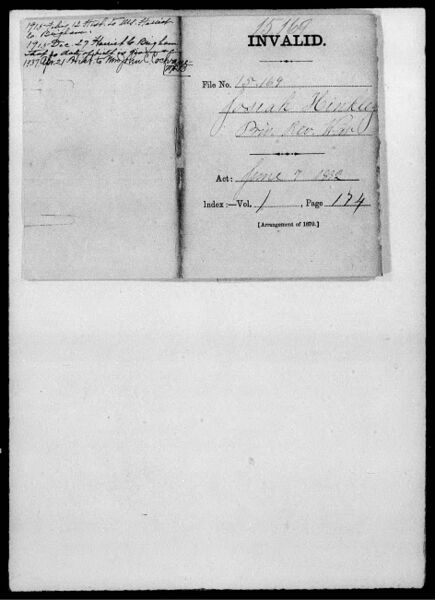 1913 Feby 12 Hist. to Ms. Harriet
C. Brigham.
1913 Dec 27 Harriet C. Brigham
1937 Apr 21 Hist to
15,169
INVALID.
File No. 15.169
Josiah Hinkley
Priv. Rev. War
Act: June 7 1832
Index:—Vol. 1, Page 174
[Arrangement of 1870.]